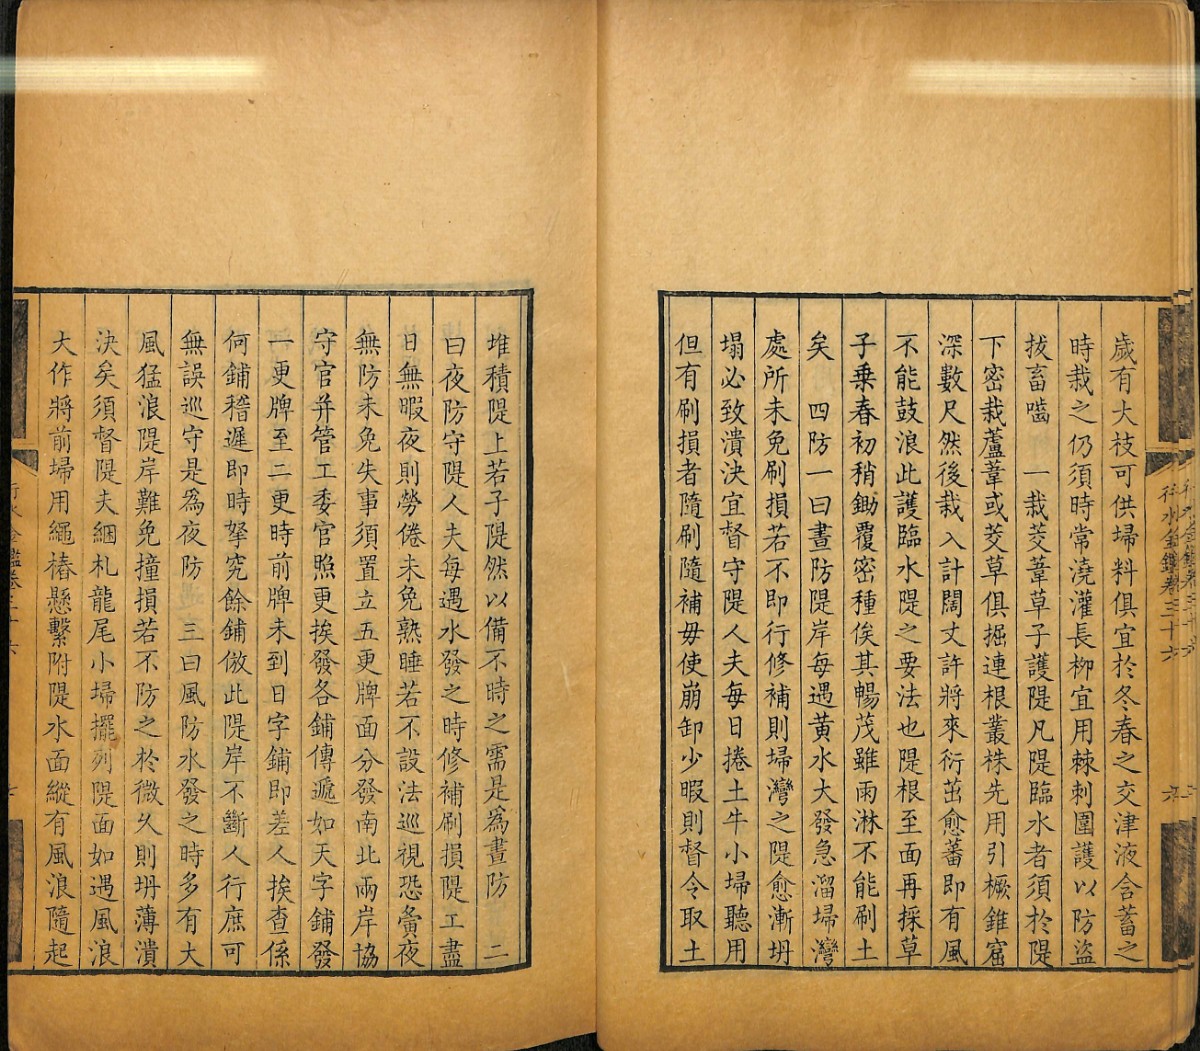 歲有大枝可供埽料俱宜於冬春之交津液含蓄之
時栽之仍須時常澆灌長柳宜用棘刺圍護以防盜
拔畜嚙　一栽茭葦草子護隄凡隄臨水者須於隄
下密栽蘆葦或茭草俱掘連根叢株先用引橛錐窟
深數尺然後栽入計闊丈許將來衍茁愈蕃即有風
不能鼓浪此護臨水隄之要法也隄根至面再採草
子乗春初稍鋤覆密種俟其暢茂雖雨淋不能刷土
矣　四防一曰晝防隄岸每遇黄水大發急溜埽灣
處所未免刷損若不即行修補則埽灣之隄愈漸坍
塌必致潰決宜督守隄人夫每日捲土牛小埽聽用
但有刷損者隨刷隨補毋使崩卸少暇則督令取土
堆積隄上若子隄然以備不時之需是爲晝防　二
曰夜防守隄人夫每遇水發之時修補刷損隄工盡
日無暇夜則勞倦未免熟睡若不設法巡視恐夤夜
無防未免失事須置立五更牌面分發南北兩岸協
守官并管工委官照更挨發各鋪傳遞如天字鋪發
一更牌至二更時前牌未到日字鋪即差人挨查係
何鋪稽遲即時拏究餘鋪倣此隄岸不斷人行庶可
無誤巡守是爲夜防　三曰風防水發之時多有大
風猛浪隄岸難免撞損若不防之於微久則坍薄潰
決矣須督隄夫綑札龍尾小埽擺列隄面如遇風浪
大作將前埽用繩樁懸繫附隄水面縱有風浪隨起
行水金鑑卷三十六